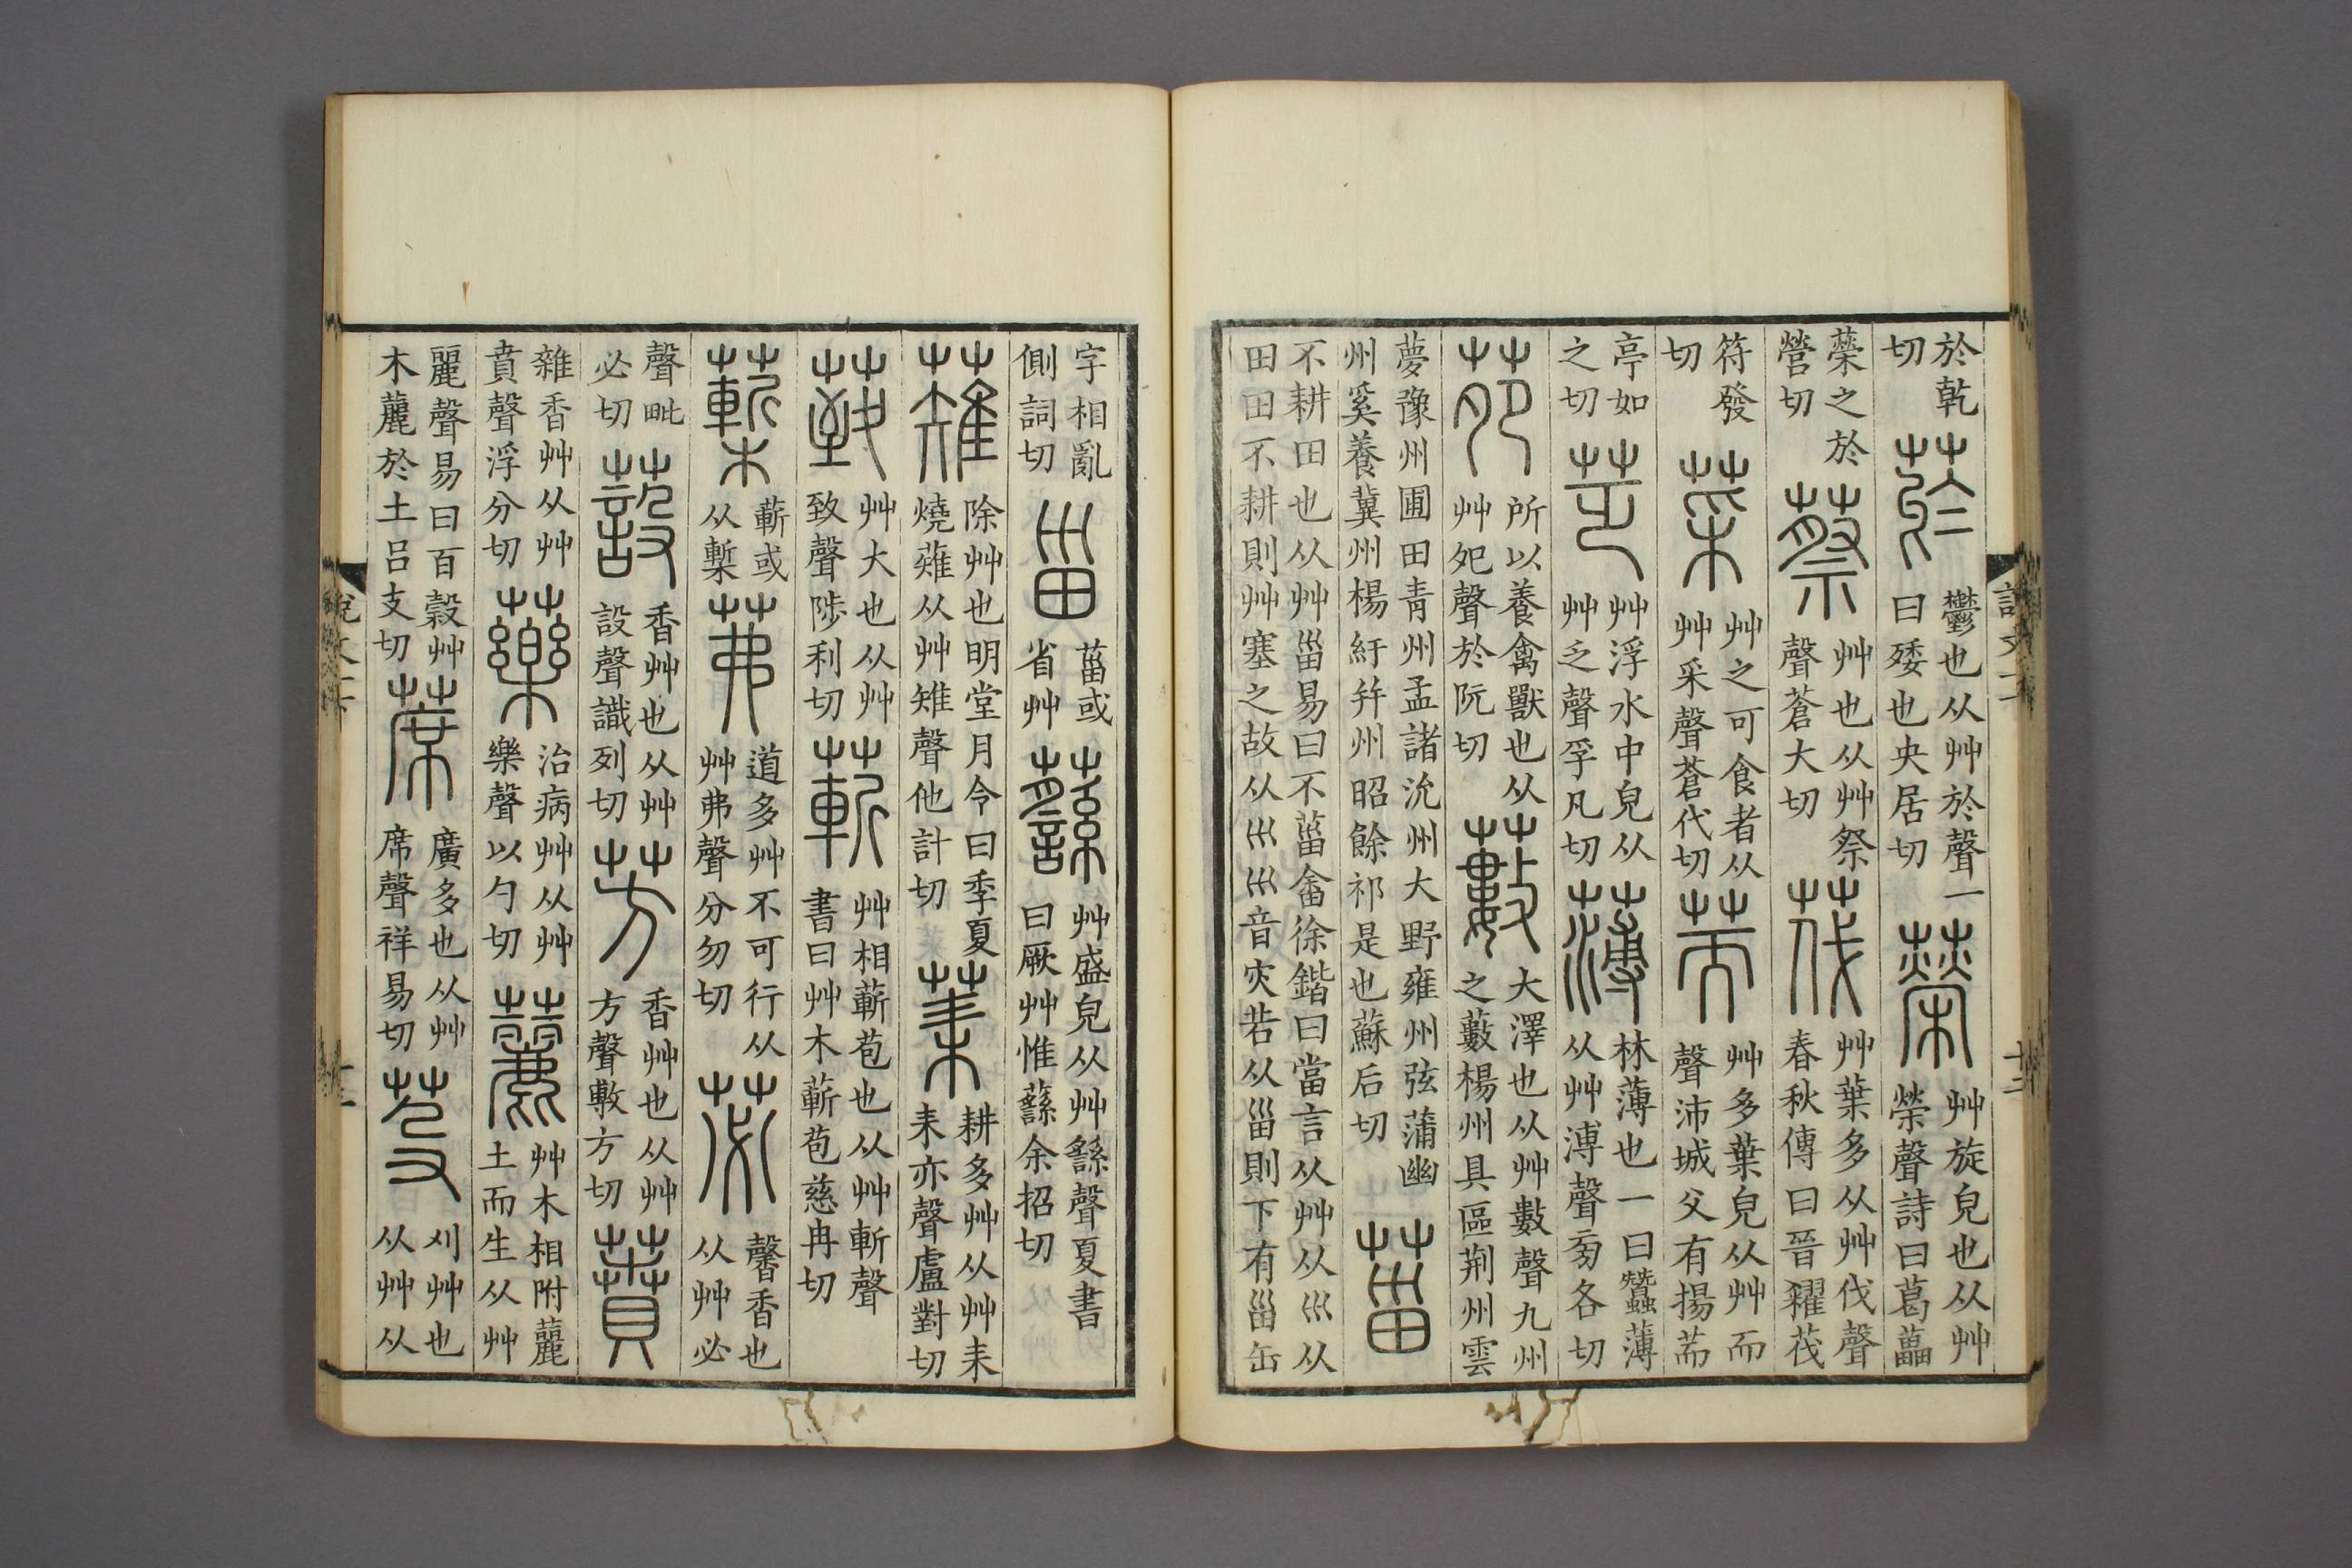 於乾切菸鬱也从艸於聲一曰矮也央居切䕦艸旋皃也从艸榮聲詩曰葛藟
䕦之於營切蔡艸也从艸祭聲蒼大切茷艸葉多从艸伐聲春秋傳曰晉糴茷
符發切菜艸之可食者从艸采聲蒼代切荋艸多葉皃从艸而聲沛城父有揚荋
亭如之切艸浮水中皃从艸乏聲孚凡切薄林薄也一曰蠶薄从艸溥聲㫄各切
苑所以養禽獸也从艸夗聲於阮切藪大澤也从艸數聲九州之藪楊州具區荆州雲
夢豫州圃田青州孟諸沇州大野雍州弦蒲幽州奚養冀州楊紆并州昭餘祁是也蘇后切菑
不耕田也从艸甾易曰不菑畬徐鍇曰當言从艸从巛从田田不耕則艸塞之故从巛巛音灾若从甾則下有甾缶
字相亂側詞切甾菑或省艸蘨艸盛皃从艸繇聲夏書曰厥艸惟蘨余招切
薙除艸也明堂月令曰季夏燒薙从艸雉聲他計切莱耕多艸从艸耒耒亦聲盧對切
䓌艸大也从艸致聲陟利切蔪艸相蔪苞也从艸斬聲書曰艸木蔪苞慈冉切
蔪或从槧茀道多艸不可行从艸弗聲分勿切苾馨香也从艸必
聲毗必切蔎香艸也从艸設聲識列切芳香艸也从艸方聲敷方切蕡
雜香艸从艸賁聲浮分切藥治病艸从艸樂聲以勺切䕻艸木相附䕻土而生从艸
麗聲易曰百穀艸木䕻於土呂支切蓆廣多也从艸席聲祥易切芟刈艸也从艸从
說文一下
十二
說文一下
十三